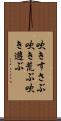 吹きすさぶ
吹き荒ぶ吹
き遊ぶ